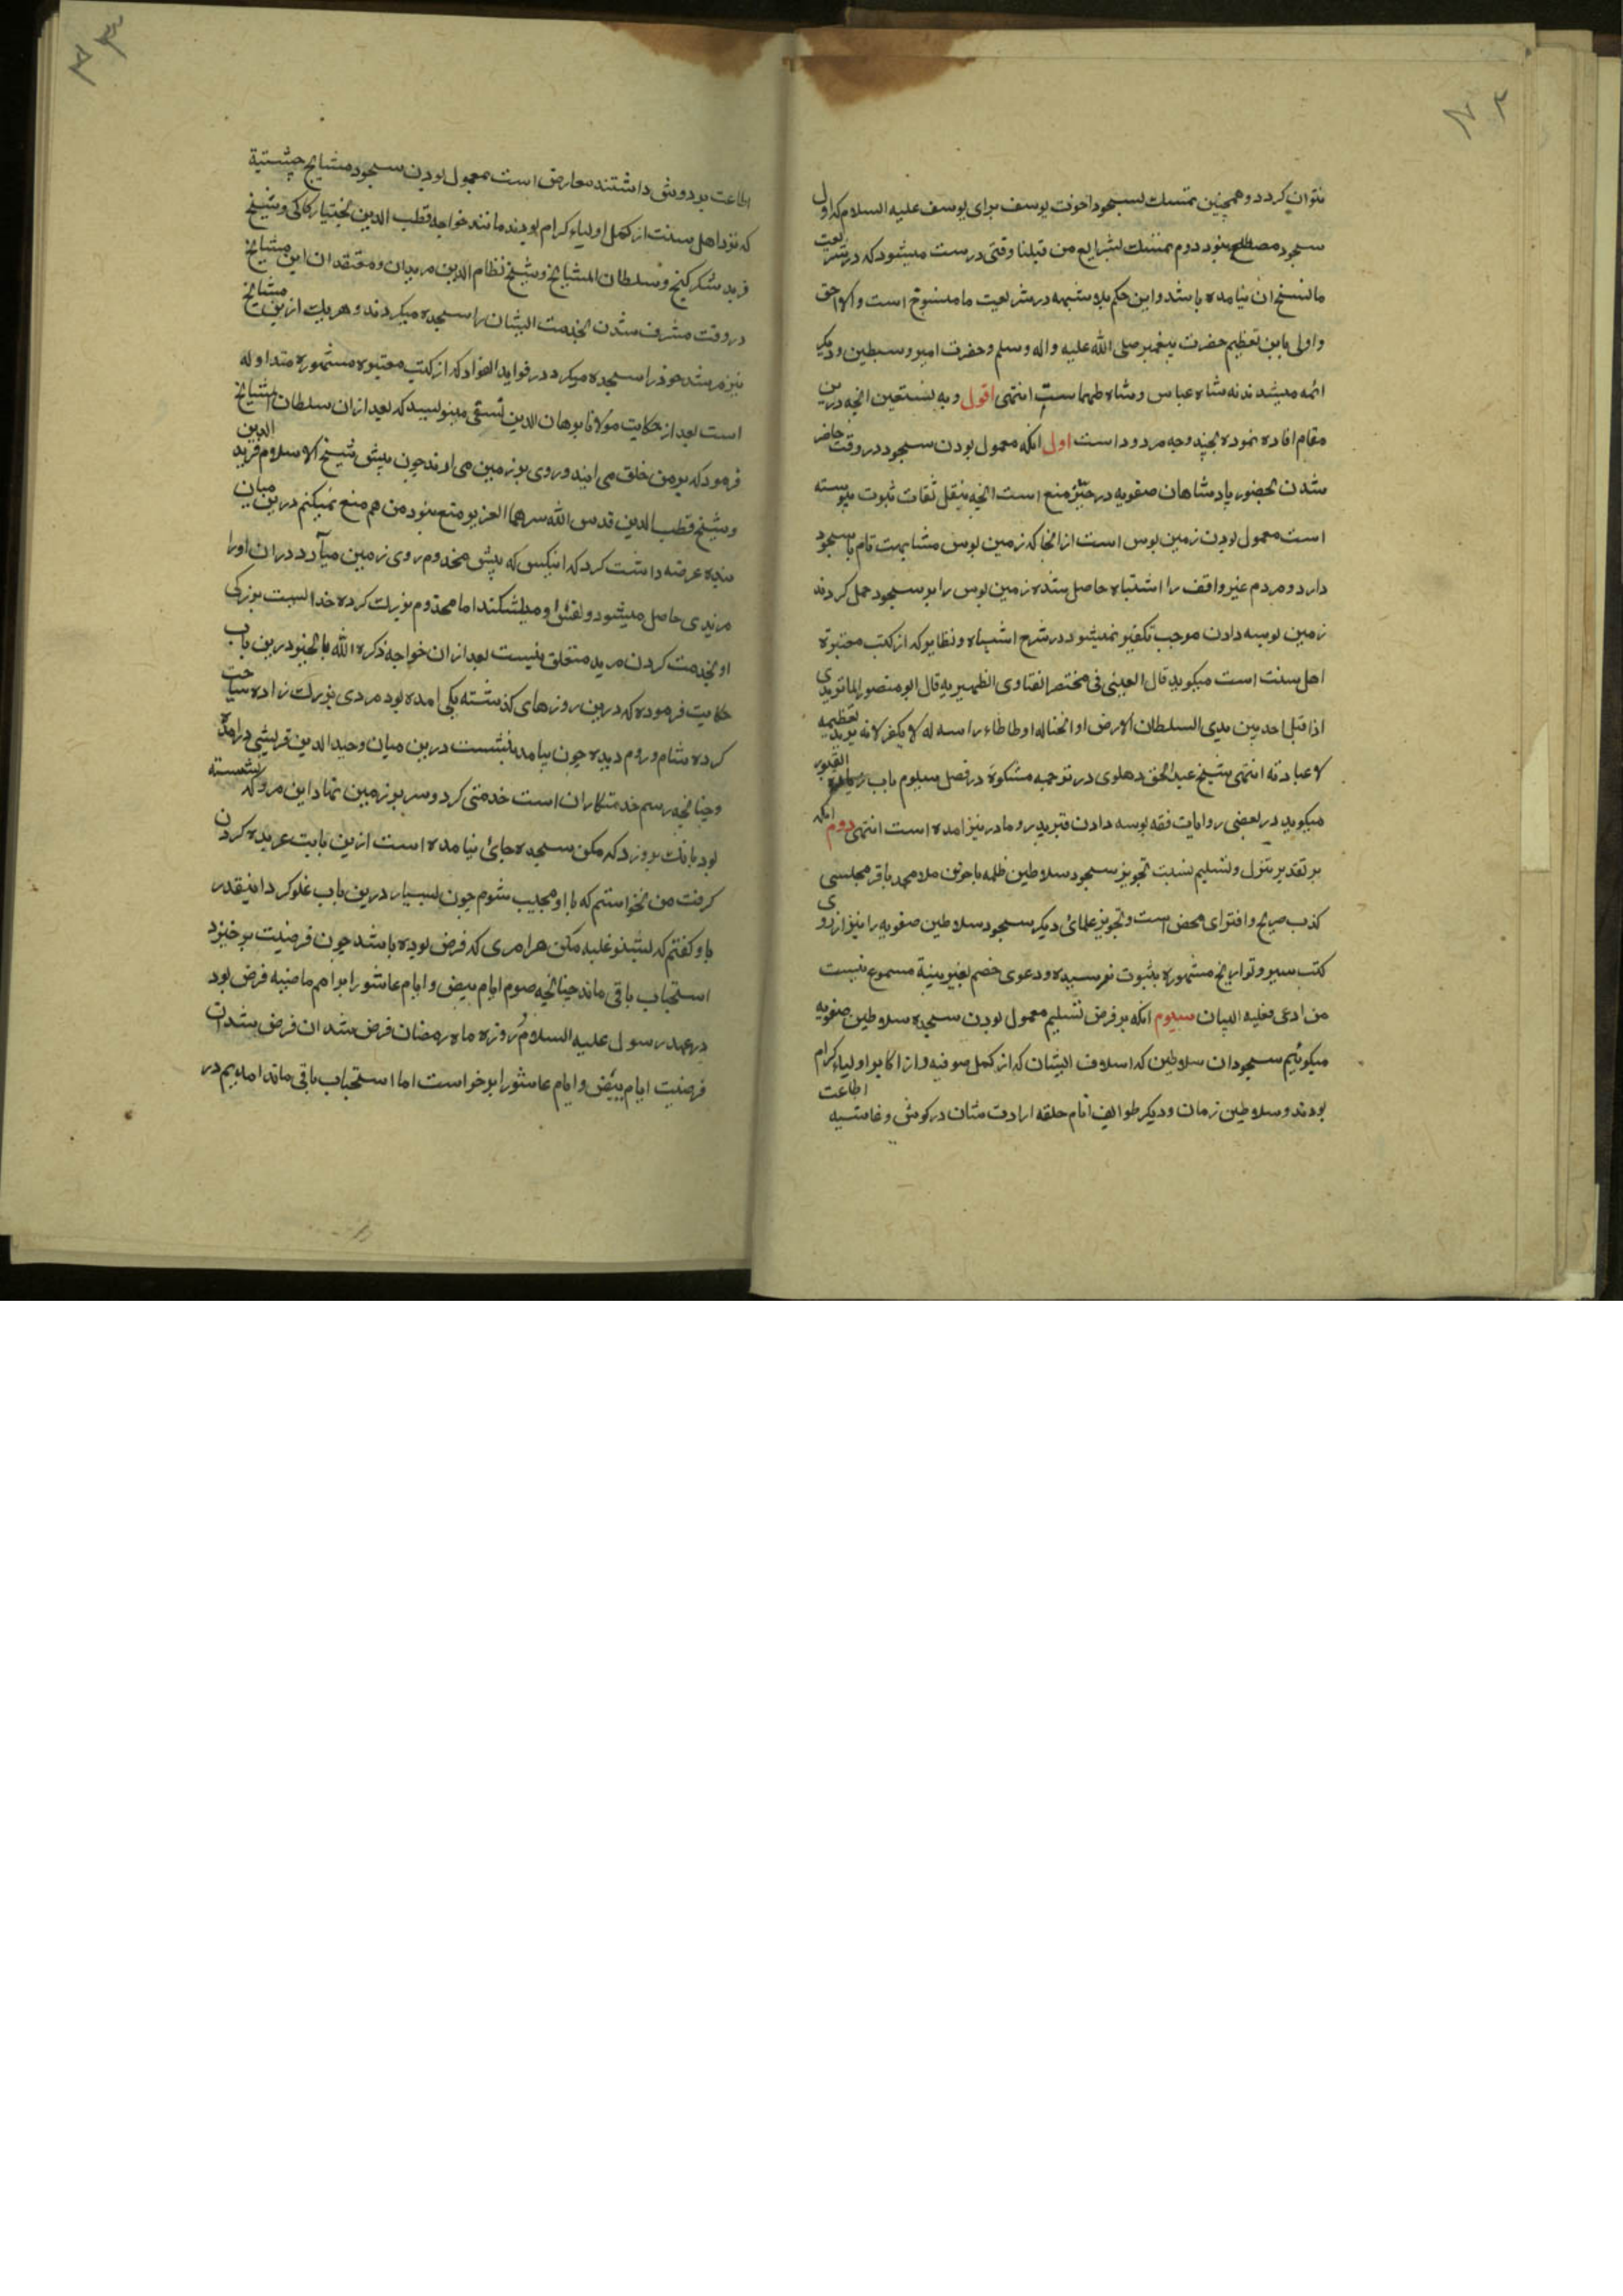 نتوان کرد و همچنین تمسک بسجود اخوت یوسف برای یوسف علیه السلام که اول
سجود مصطلح نبود دوم تمسک بشرایع من قبلنا وقتی درست میشود که در شریعت
ما نسخ ان نیامده باشد و این حکم بلا شبهه در شریعت ما منسوخ است و الا احق
و اولی باین تعظیم حضرت پیغمبر صلی الله علیه واله وسلم و حضرت امیر و سبطین و دیگر
ائمه میشدند نه شاه عباس و شاه طهماسب انتهی اقول و به نستعین انچه درین
مقام افاده نموده بچند وجه مردود است اول انکه معمول بودن سجود در وقت حاضر
شدن بحضور پادشاهان صفویه در حیّز منع است انچه بنقل ثقات ثبوت پیوسته
است معمول بودن زمین بوس است از انجا که زمین بوس مشابهت تام با سجود
دارد و مردم غیر واقف را اشتباه حاصل شده زمین بوس را بر سجود حمل کردند
زمین بوسه دادن موجب تکفیر نمیشود در شرح اشباه و نظایر که از کتب معتبرة
اهل سنت است میگوید قال العینی فی مختصر الفتاوی الظهیریه قال ابو منصور الماتریدی
اذا قبل احد بین یدی السلطان الارض او انحنا له او طاطاء راسه له لا یکفر لانه یرید تعظیمه
لا عبادته انتهی شیخ عبد الحق دهلوی در ترجمه مشکوة در فصل سیوم باب زیارة القبور
میگوید در بعضی روایات فقه بوسه دادن قبر پدر و مادر نیز امده است انتهی دوم انکه
بر تقدیر تنزل و تسلیم نسبت تجویز سجود سلاطین ظلمه باخوین ملا محمد باقر مجلسی
کذب صریح و افترای محض است و تجویز علمائ دیگر سجود سلاطین صفویه را نیز از روی
کتب سیر و تواریخ مشهوره بثبوت نرسیده و دعوی خصم بغیر بینة مسموع نیست
من ادعی فعلیه البیان سیوم انکه بر فرض تسلیم معمول بودن سجده سلاطین صفویه
میگوئیم سجود ان سلاطین که اسلاف ایشان که از کمل صوفیه و از اکابر اولیاء کرام
بودند و سلاطین زمان و دیگر طوایف انام حلقه ارادت شان در گوش و غاشیه اطاعت
اطاعت بر دوش داشتند معارض است بمعمول بودن سجود مشایخ چشتیة
که نزد اهل سنت از کمل اولیاء کرام بودند مانند خواجه قطب الدین بختیار کاکی و شیخ
فرید شکر گنج و سلطان المشایخ و شیخ نظام الدین مریدان و معتقدان این مشایخ
در وقت مشرف شدن بخدمت ایشان را سجده میکردند و هر یک ازین مشایخ
نیز مرشد خود را سجده میکرد در فواید الفواد که از کتب معتبره مشهوره متداوله
است بعد از حکایت مولانا برهان الدین نسفی مینویسد که بعد از ان سلطان المشایخ
فرمود که بر من خلق می ایند و روی بر زمین می ارند چون پیش شیخ الاسلام فرید الدین
و شیخ قطب الدین قدس الله سرهما العزیز منع نبود من هم منع نمیکنم درین میان
بنده عرضه داشت کرد که انکس که پیش مخدوم روی زمین میآرد در ان اورا
مزیدی حاصل میشود و نفس او میشکند اما مخدوم بزرگ کرده خدا است بزرگی
او بخدمت کردن مرید متعلق نیست بعد از ان خواجه ذکره الله بالخیر درین باب
حکایت فرموده که درین روزهای گذشته یکی امده بود مردی بزرگ زاده سیاحت
کرده شام و روم دیده چون بیامد بنشست درین میان وحید الدین قریشی در امد
و چنانچه رسم خدمتکاران است خدمتی کرد و سر بر زمین نهاد این مرد که نشسته
بود بانگ برو زد که مکن سجده جائ نیامده است ازین بابت عربده کردن
گرفت من نخواستم که با او مجیب شوم چون بسیار درین باب غلو کرد اینقدر
باو گفتم که بشنو غلبه مکن هر امری که فرض بوده باشد چون فرضیت بر خیزد
استحباب باقی ماند چنانچه صوم ایام بیض و ایام عاشورا بر امم ماضیه فرض بود
در عهد رسول علیه السلام روزه ماه رمضان فرض شد ان فرض شد ان
فرضیت ایام بیض و ایام عاشورا برخواست اما استحباب باقی ماند امدیم در